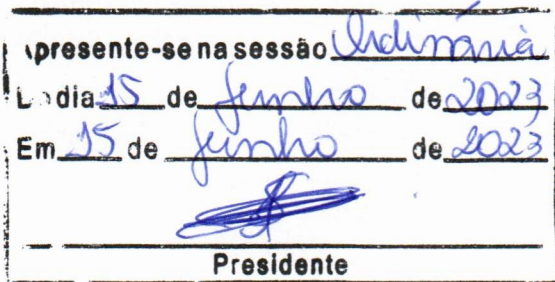 apresente-se na sessão Ordinária
do dia 15 de junho de 2023
Em 15 de junho de 2023
Presidente